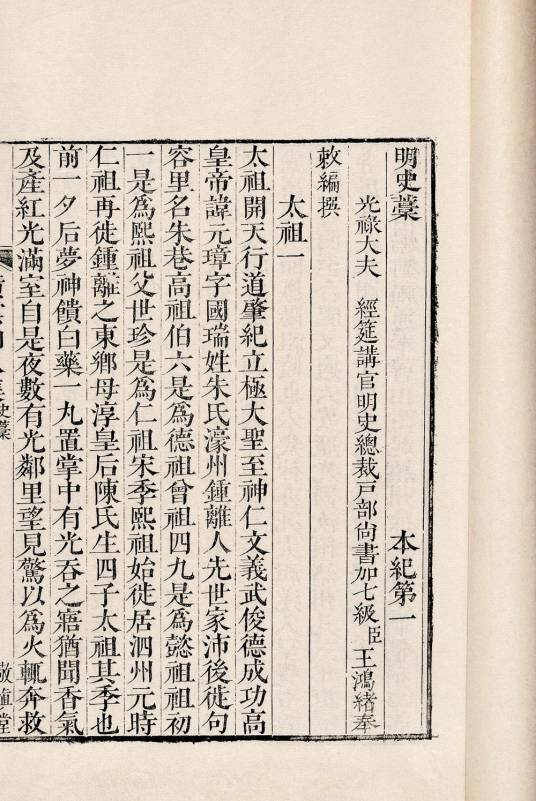 明史藁 本紀第一
光祿大夫 經筵講官明史總裁戶部尚書加七級臣王鴻緒奉
敕編撰
太祖一
太祖開天行道肇紀立極大聖至神仁文義武俊德成功高
皇帝諱元璋字國瑞姓朱氏濠州鍾離人先世家沛後徙句
容里名朱巷高祖伯六是爲德祖曾祖四九是爲懿祖祖初
一是爲熙祖父世珍是爲仁祖宋季熙祖始徙居泗州元時
仁祖再徙鍾離之東鄉母淳皇后陳氏生四子太祖其季也
前一夕后夢神饋白藥一丸置掌中有光吞之寤猶聞香氣
及產紅光滿室自是夜數有光鄰里望見驚以爲火輒奔救
史藁
堂